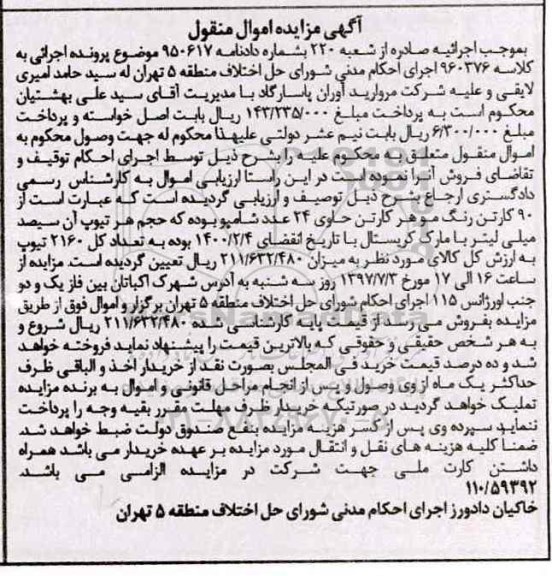 آگهی مزایده اموال منقول
بموجب اجرائیه صادره از شعبه ۲۲۰ بشماره دادنامه ۹۵۰۶۱۷ موضوع پرونده اجرائی به
کلاسه ۹۶۰۳۷۶ اجرای احکام مدنی شورای حل اختلاف منطقه ۵ تهران له سید حامد امیری
لایقی و علیه شرکت مروارید آوران پاسارگاد با مدیریت آقای سید علی بهشتیان
محکوم است به پرداخت مبلغ ۱۴۳/۲۳۵/۰۰۰ ریال بابت اصل خواسته و پرداخت
مبلغ ۶/۳۰۰/۰۰۰ ریال بابت نیم عشر دولتی علیهذا محکوم له جهت وصول محکوم به
اموال منقول متعلق به محکوم علیه را بشرح ذیل توسط اجرای احکام توقیف و
تقاضای فروش آنرا نموده است در این راستا ارزیابی اموال به کارشناس رسمی
دادگستری ارجاع بشرح ذیل توصیف و ارزیابی گردیده است که عبارت است از
۹۰ کارتن رنگ مو هر کارتن حاوی ۲۴ عدد شامپو بوده که حجم هر تیوپ آن سیصد
میلی لیتر با مارک کریستال با تاریخ انقضای ۱۴۰۰/۲/۴ بوده به تعداد کل ۲۱۶۰ تیوپ
به ارزش کل کالای مورد نظر به میزان ۲۱۱/۶۳۲/۴۸۰ ریال تعیین گردیده است. مزایده از
ساعت ۱۶ الی ۱۷ مورخ ۱۳۹۷/۷/۳ روز سه شنبه به آدرس شهرک اکباتان بین فاز یک و دو
جنب اورژانس ۱۱۵ اجرای احکام شورای حل اختلاف منطقه ۵ تهران برگزار و اموال فوق از طریق
مزایده بفروش می رسد از قیمت پایه کارشناسی شده ۲۱۱/۶۳۲/۴۸۰ ریال شروع و
به هر شخص حقیقی و حقوقی که بالاترین قیمت را پیشنهاد نماید فروخته خواهد
شد و ده درصد قیمت خرید فی المجلس بصورت نقد از خریدار اخذ و الباقی ظرف
حداکثر یک ماه از وی وصول و پس از انجام مراحل قانونی و اموال به برنده مزایده
تملیک خواهد گردید در صورتیکه خریدار ظرف مهلت مقرر بقیه وجه را پرداخت
ننماید سپرده وی پس از کسر هزینه مزایده بنفع صندوق دولت ضبط خواهد شد
ضمنا کلیه هزینه های نقل و انتقال مورد مزایده بر عهده خریدار می باشد همراه
داشتن کارت ملی جهت شرکت در مزایده الزامی می باشد
۱۱۰/۵۹۳۹۲
خاکیان دادورز اجرای احکام مدنی شورای حل اختلاف منطقه ۵ تهران